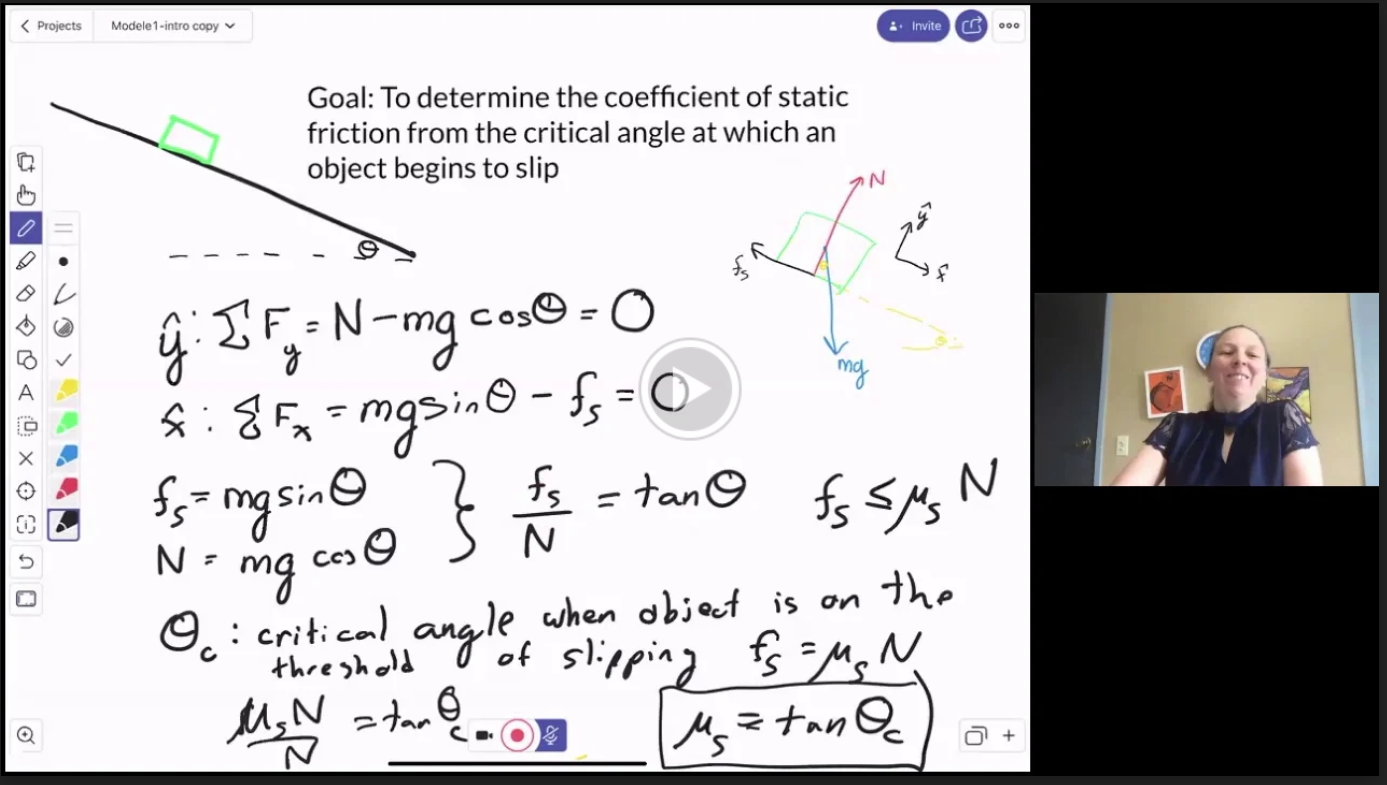 Projects
Modele1-intro copy
Invite
Goal: To determine the coefficient of static
friction from the critical angle at which an
object begins to slip
N
ŷ
x̂
fₛ
θ
θ
θ
mg
ŷ: ΣF_y = N - mg cosθ = 0
x̂: ΣFₓ = mg sinθ - fₛ = 0
fₛ = mg sinθ
N = mg cosθ
fₛ/N = tanθ
fₛ ≤ μₛ N
θ_c: critical angle when object is on the
threshold of slipping fₛ = μₛ N
μₛN/N = tanθ_c
μₛ = tanθ_c
A